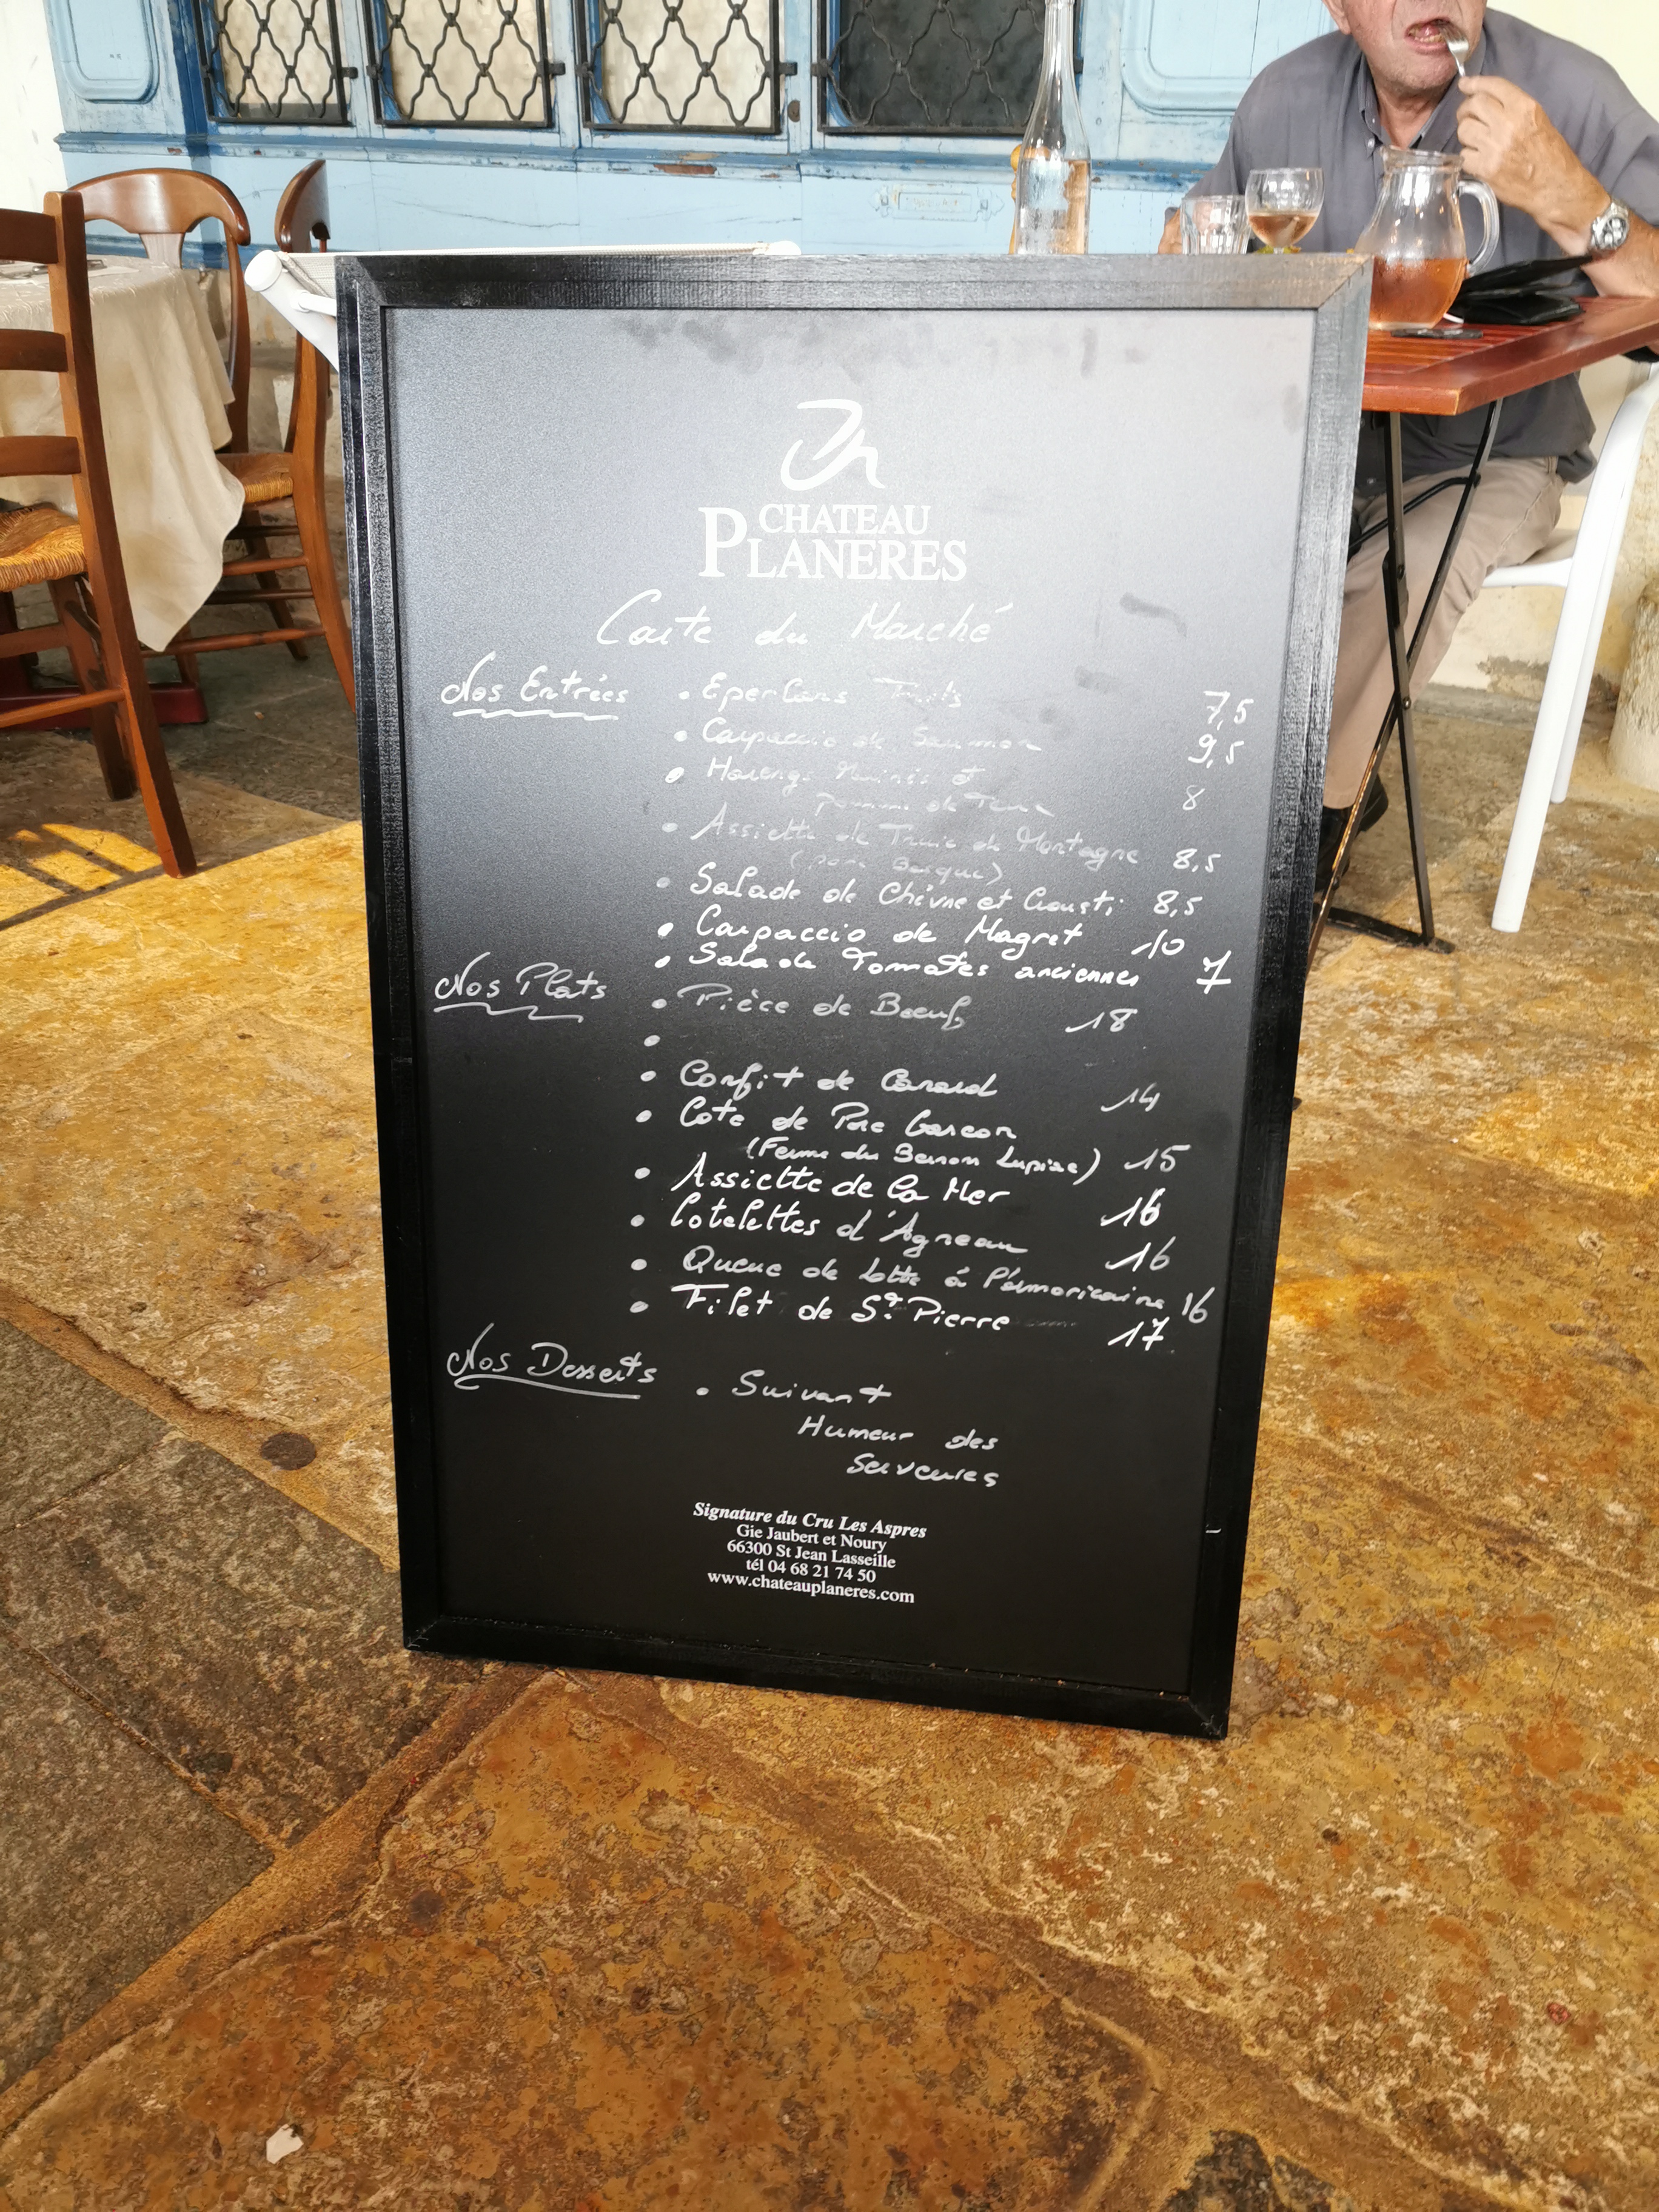 CHATEAU
PLANERES
Carte du Marché
Nos Entrées
• Eperlans Frits 7,5
• Carpaccio de Saumon 9,5
• Harengs Marinés et
pomme de Terre 8
• Assiette de Truite de Montagne 8,5
(pays Basque)
• Salade de Chèvre et Crousti 8,5
• Carpaccio de Magret 10
• Salade Tomates anciennes 7
Nos Plats
• Pièce de Boeuf 18
•
• Confit de Canard 14
• Cote de Porc Gascon
(Ferme du Baron Lupiac) 15
• Assiette de la Mer 16
• Cotelettes d'Agneau 16
• Queue de Lotte à l'armoricaine 16
• Filet de St Pierre 17
Nos Desserts
• Suivant
Humeur des
Serveuses
Signature du Cru Les Aspres
Gie Jaubert et Noury
66300 St Jean Lasseille
tél 04 68 21 74 50
www.chateauplaneres.com